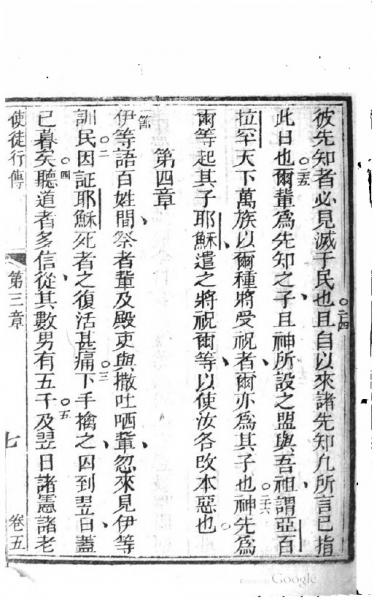 彼先知者必見滅于民也且自以來諸先知凡所言已指
二四
此日也爾輩為先知之子且神所設之盟與吾祖謂亞百
二五
拉罕天下萬族以爾種將受祝者爾亦為其子也神先為
二六
爾等起其子耶穌遣之將祝爾等以使汝各改本惡也
第四章
伊等語百姓間祭者輩及殿吏與撒吐哂輩忽來見伊等
訓民因証耶穌死者之復活甚痛下手擒之囚到翌日蓋
二
三
已暮矣聽道者多信從其數男有五千及翌日諸憲諸老
四
五
使徒行傳
第三章
七
卷五
Google